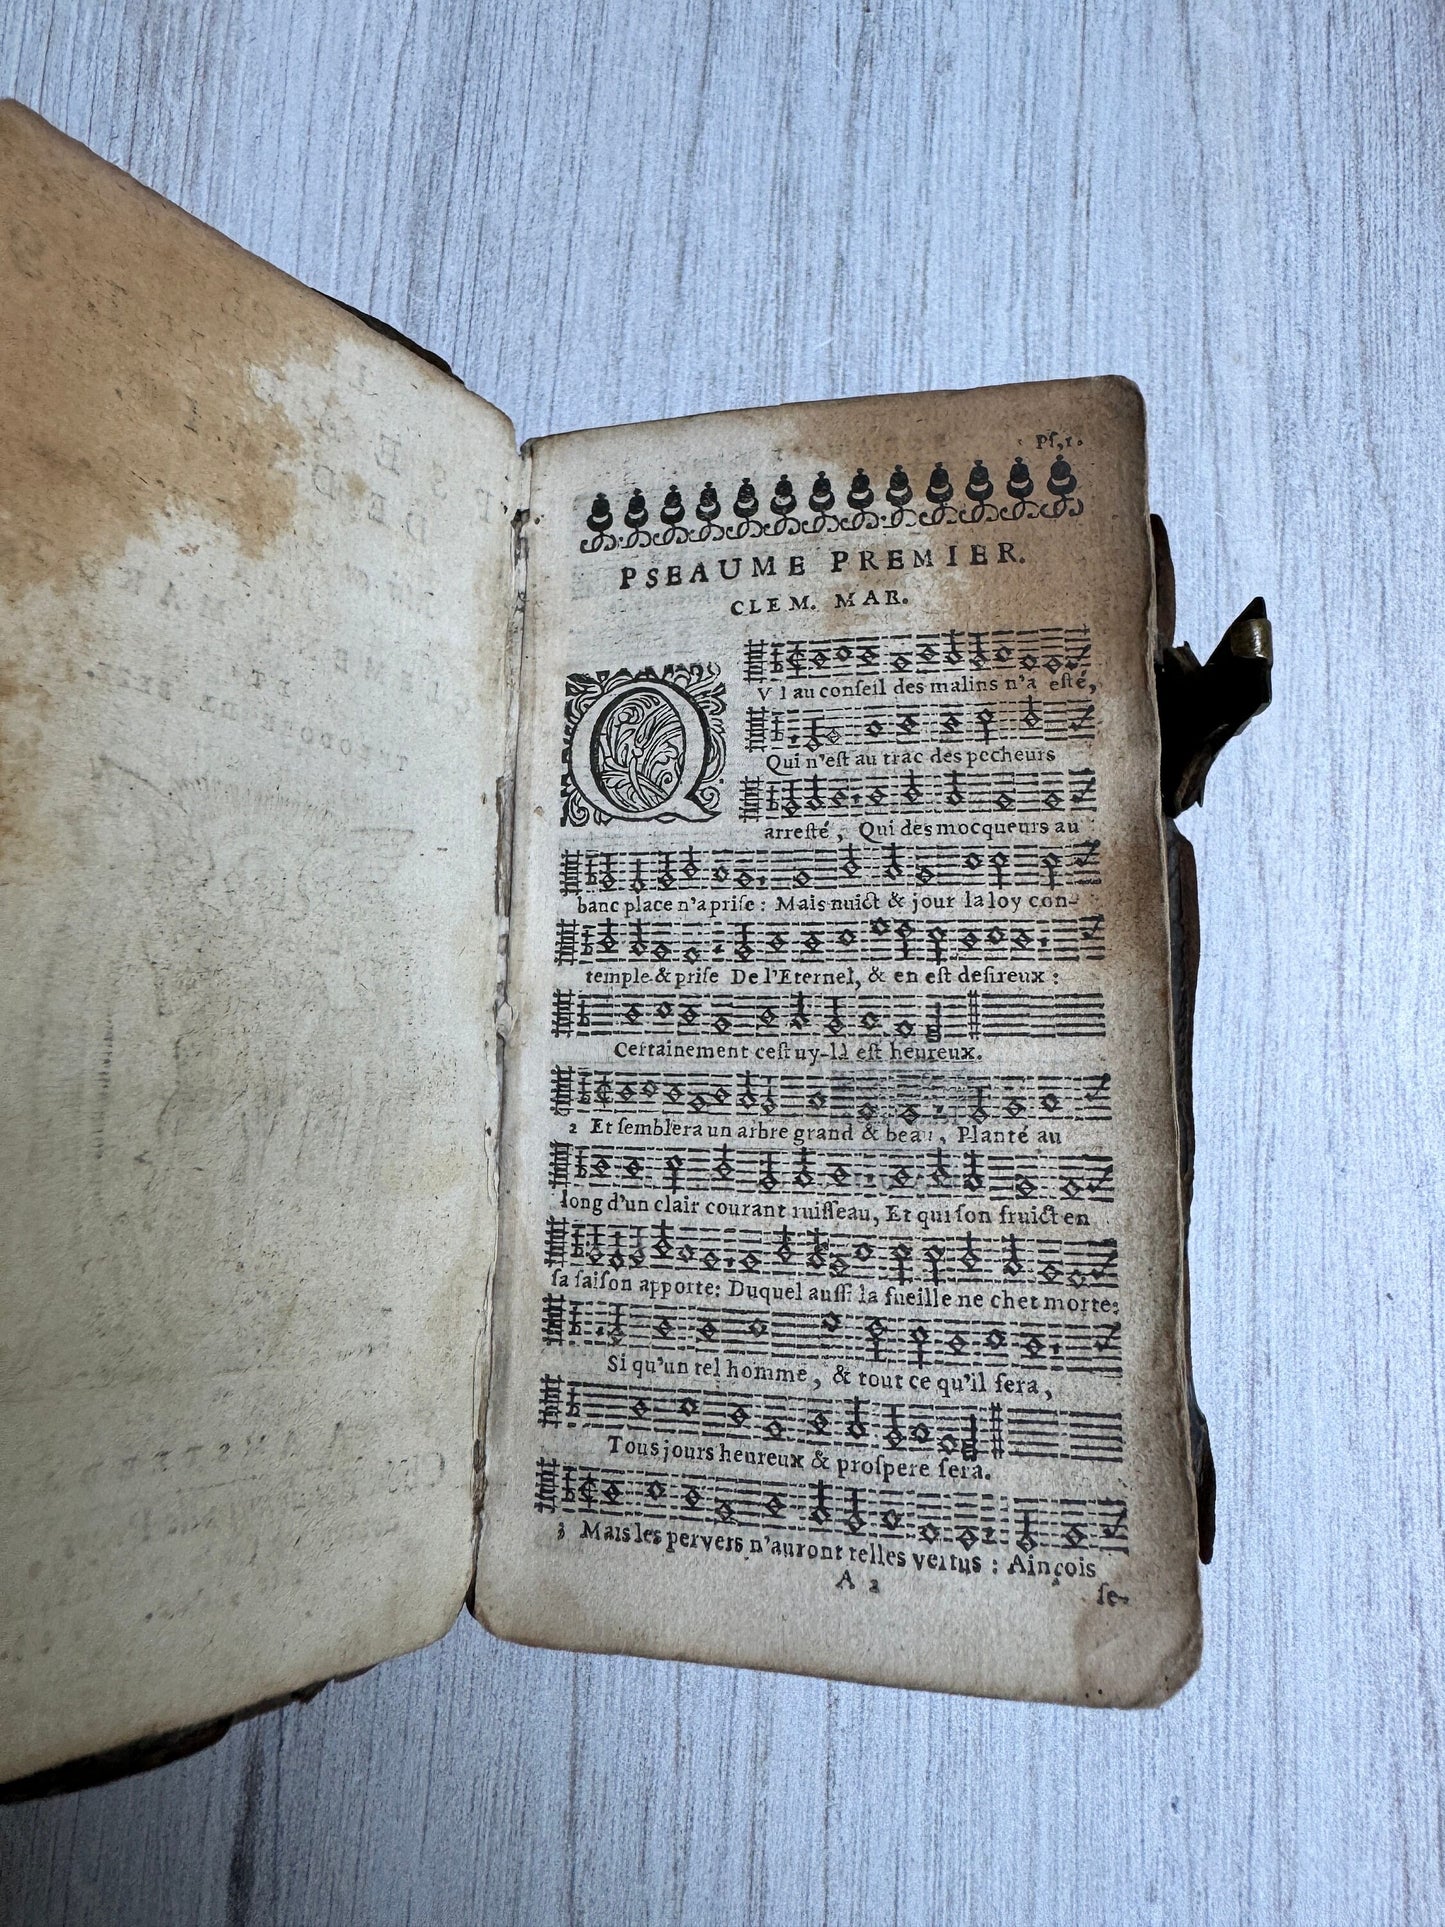 Pſ. 1.
PSEAUME PREMIER.
CLEM. MAR.
QVI au conſeil des malins n'a eſté,
Qui n'eſt au trac des pecheurs
arreſté, Qui des mocqueurs au
banc place n'a priſe : Mais nuict & jour la loy con-
temple & priſe De l'Eternel, & en eſt deſireux :
Certainement ceſtuy-là eſt heureux.
2 Et ſemblera un arbre grand & beau, Planté au
long d'un clair courant ruiſſeau, Et qui ſon fruict en
ſa ſaiſon apporte: Duquel auſſi la fueille ne chet morte:
Si qu'un tel homme, & tout ce qu'il fera,
Tousjours heureux & proſpere ſera.
3 Mais les pervers n'auront telles vertus : Ainçois
A 2
ſe-